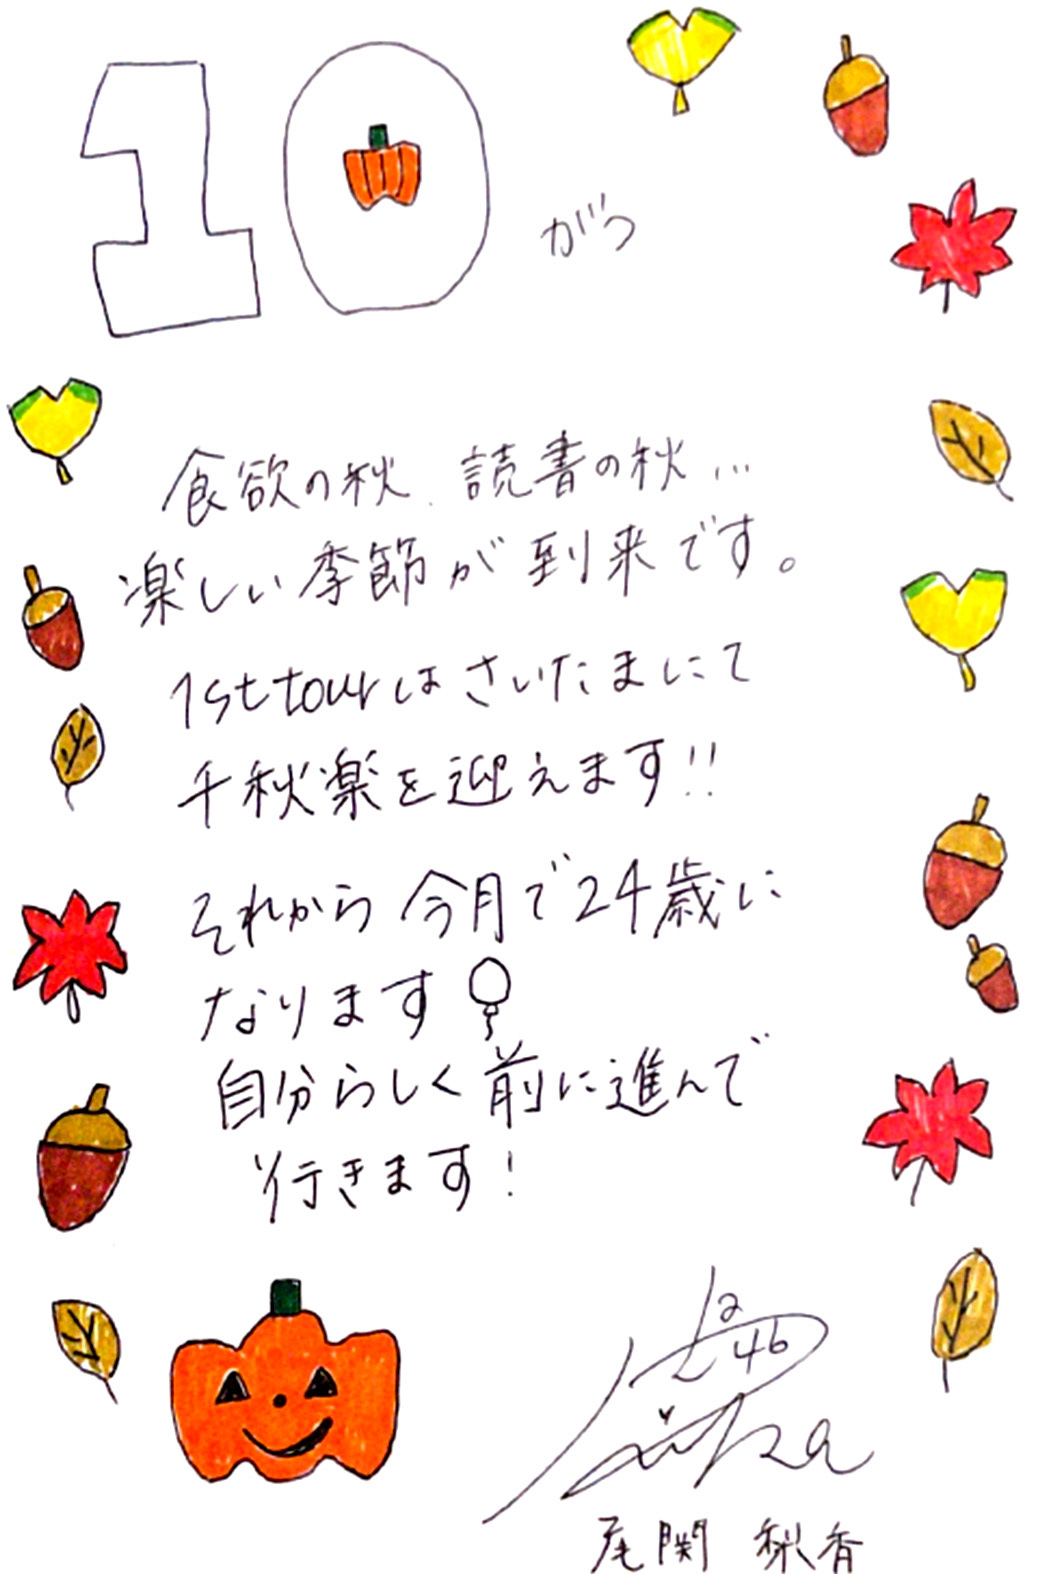 10がつ
食欲の秋、読書の秋…
楽しい季節が到来です。
1st tourはさいたまにて
千秋楽を迎えます!!
それから今月で24歳に
なります
自分らしく前に進んで
行きます!
46
尾関 梨香